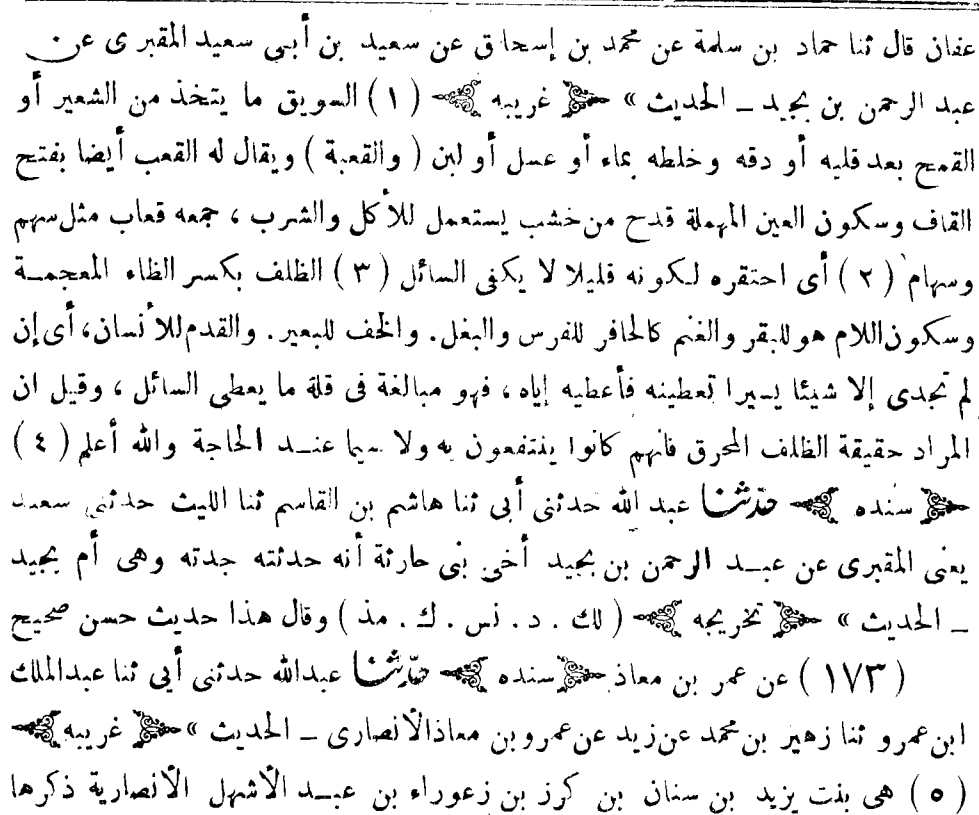 عفان قال ثنا حماد بن سلمة عن محمد بن إسحاق عن سعيد بن أبى سعيد المقبرى عن
عبد الرحمن بن بجيد ـ الحديث » غريبه ( ١ ) السويق ما يتخذ من الشعير أو
القمح بعد قليه أو دقه وخلطه بماء أو عسل أو لبن ( والقعبة ) ويقال له القعب أيضا بفتح
القاف وسكون العين المهملة قدح من خشب يستعمل للأكل والشرب ، جمعه قعاب مثل سهم
وسهام ( ٢ ) أى احتقره لكونه قليلا لا يكفى السائل ( ٣ ) الظلف بكسر الظاء المعجمة
وسكون اللام هو للبقر والغنم كالحافر للفرس والبغل. والخف للبعير. والقدم للأنسان، أى إن
لم تجدى إلا شيئا يسيرا تعطينه فأعطيه إياه ، فهو مبالغة فى قلة ما يعطى السائل ، وقيل ان
المراد حقيقة الظلف المحرق فانهم كانوا ينتفعون به ولا سيما عند الحاجة والله أعلم ( ٤ )
سنده حدثنا عبد الله حدثنى أبى ثنا هاشم بن القاسم ثنا الليث حدثنى سعيد
يعنى المقبرى عن عبد الرحمن بن بجيد أخى بنى حارثة أنه حدثته جدته وهى أم بجيد
ـ الحديث » تخريجه ( لك . د . نس . ك . مذ ) وقال هذا حديث حسن صحيح
( ١٧٣ ) عن عمر بن معاذ سنده حدثنا عبدالله حدثنى أبى ثنا عبدالملك
ابن عمرو ثنا زهير بن محمد عن زيد عن عمرو بن معاذ الأنصارى ـ الحديث » غريبه
( ٥ ) هى بنت يزيد بن سنان بن كرز بن زعوراء بن عبد الأشهل الأنصارية ذكرها